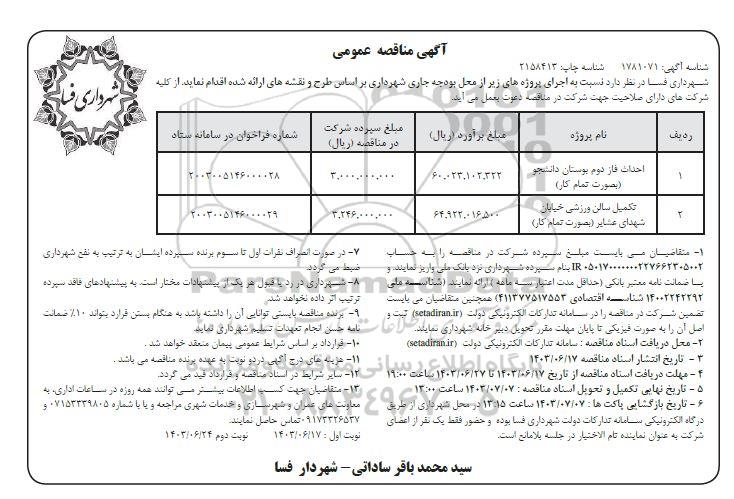 آگهی مناقصه عمومی
شهرداری فسا
شناسه آگهی: ۱۷۸۱۰۷۱ شناسه چاپ: ۲۱۵۸۴۱۳
شهرداری فسا در نظر دارد نسبت به اجرای پروژه های زیر از محل بودجه جاری شهرداری بر اساس طرح و نقشه های ارائه شده اقدام نماید. از کلیه
شرکت های دارای صلاحیت جهت شرکت در مناقصه دعوت بعمل می آید.
ردیف نام پروژه مبلغ برآورد (ریال) مبلغ سپرده شرکت در مناقصه (ریال) شماره فراخوان در سامانه ستاد
۱ احداث فاز دوم بوستان دانشجو (بصورت تمام کار) ۶۰.۰۲۳.۱۰۲.۳۲۲ ۳.۰۰۰.۰۰۰.۰۰۰ ۲۰۰۳۰۰۵۱۴۶۰۰۰۰۲۸
۲ تکمیل سالن ورزشی خیابان شهدای عشایر (بصورت تمام کار) ۶۴.۹۲۲.۰۱۶.۵۰۰ ۳.۲۴۶.۰۰۰.۰۰۰ ۲۰۰۳۰۰۵۱۴۶۰۰۰۰۲۹
۱- متقاضیان می بایست مبلغ سپرده شرکت در مناقصه را به حساب
IR ۰۵۰۱۷۰۰۰۰۰۰۰۲۲۷۶۶۲۳۰۵۰۰۲ بنام سپرده شهرداری نزد بانک ملی واریز نمایند. و
یا ضمانت نامه معتبر بانکی (حداقل مدت اعتبار سه ماهه) ارائه نمایند. (شناسه ملی
۱۴۰۰۲۲۴۲۲۹۲ شناسه اقتصادی ۴۱۱۳۷۷۵۱۷۵۵۳) همچنین متقاضیان می بایست
تضمین شرکت در مناقصه را در سامانه تدارکات الکترونیکی دولت (setadiran.ir) ثبت و
اصل آن را به صورت فیزیکی تا پایان مهلت مقرر تحویل دبیر خانه شهرداری نمایند.
۲- محل دریافت اسناد مناقصه : سامانه تدارکات الکترونیکی دولت (setadiran.ir)
۳ - تاریخ انتشار اسناد مناقصه ۱۴۰۳/۰۶/۱۷
۴ - مهلت دریافت اسناد مناقصه از تاریخ ۱۴۰۳/۰۶/۱۷ تا ۱۴۰۳/۰۶/۲۷ ساعت ۱۹:۰۰
۵ - تاریخ نهایی تکمیل و تحویل اسناد مناقصه : ۱۴۰۳/۰۷/۰۷ ساعت ۱۳:۰۰
۶ - تاریخ بازگشایی پاکت ها : ۱۴۰۳/۰۷/۰۷ ساعت ۱۳:۱۵ در محل شهرداری از طریق
درگاه الکترونیکی سامانه تدارکات دولت شهرداری فسا بوده و حضور فقط یک نفر از اعضای
شرکت به عنوان نماینده تام الاختیار در جلسه بلامانع است.
۷- در صورت انصراف نفرات اول تا سوم برنده سپرده ایشان به ترتیب به نفع شهرداری
ضبط می گردد.
۸- شهرداری در رد یا قبول هر یک از پیشنهادات مختار است. به پیشنهادهای فاقد سپرده
ترتیب اثر داده نخواهد شد.
۹- برنده مناقصه بایستی توانایی آن را داشته باشد به هنگام بستن قرارد بتواند ۱۰٪ ضمانت
نامه حسن انجام تعهدات تسلیم شهرداری نماید.
۱۰- قرارداد بر اساس شرایط عمومی پیمان منعقد خواهد شد .
۱۱- هزینه های درج آگهی در دو نوبت به عهده برنده مناقصه می باشد .
۱۲- سایر شرایط در اسناد مناقصه و قرارداد قید می گردد.
۱۳- متقاضیان جهت کسب اطلاعات بیشتر می توانند همه روزه در ساعات اداری، به
معاونت های عمران و شهرسازی و خدمات شهری مراجعه و یا با شماره ۰۷۱۵۳۳۳۹۸۰۵ و
۰۹۱۷۳۳۲۶۵۳۷ تماس حاصل نمایند.
نوبت اول : ۱۴۰۳/۰۶/۱۷ نوبت دوم ۱۴۰۳/۰۶/۲۴
سید محمد باقر ساداتی- شهردار فسا